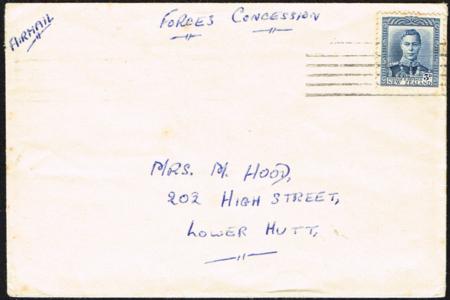 AIRMAIL
FORCES CONCESSION
NEW ZEALAND
3D
MRS. M. HOOD,
202 HIGH STREET,
LOWER HUTT,